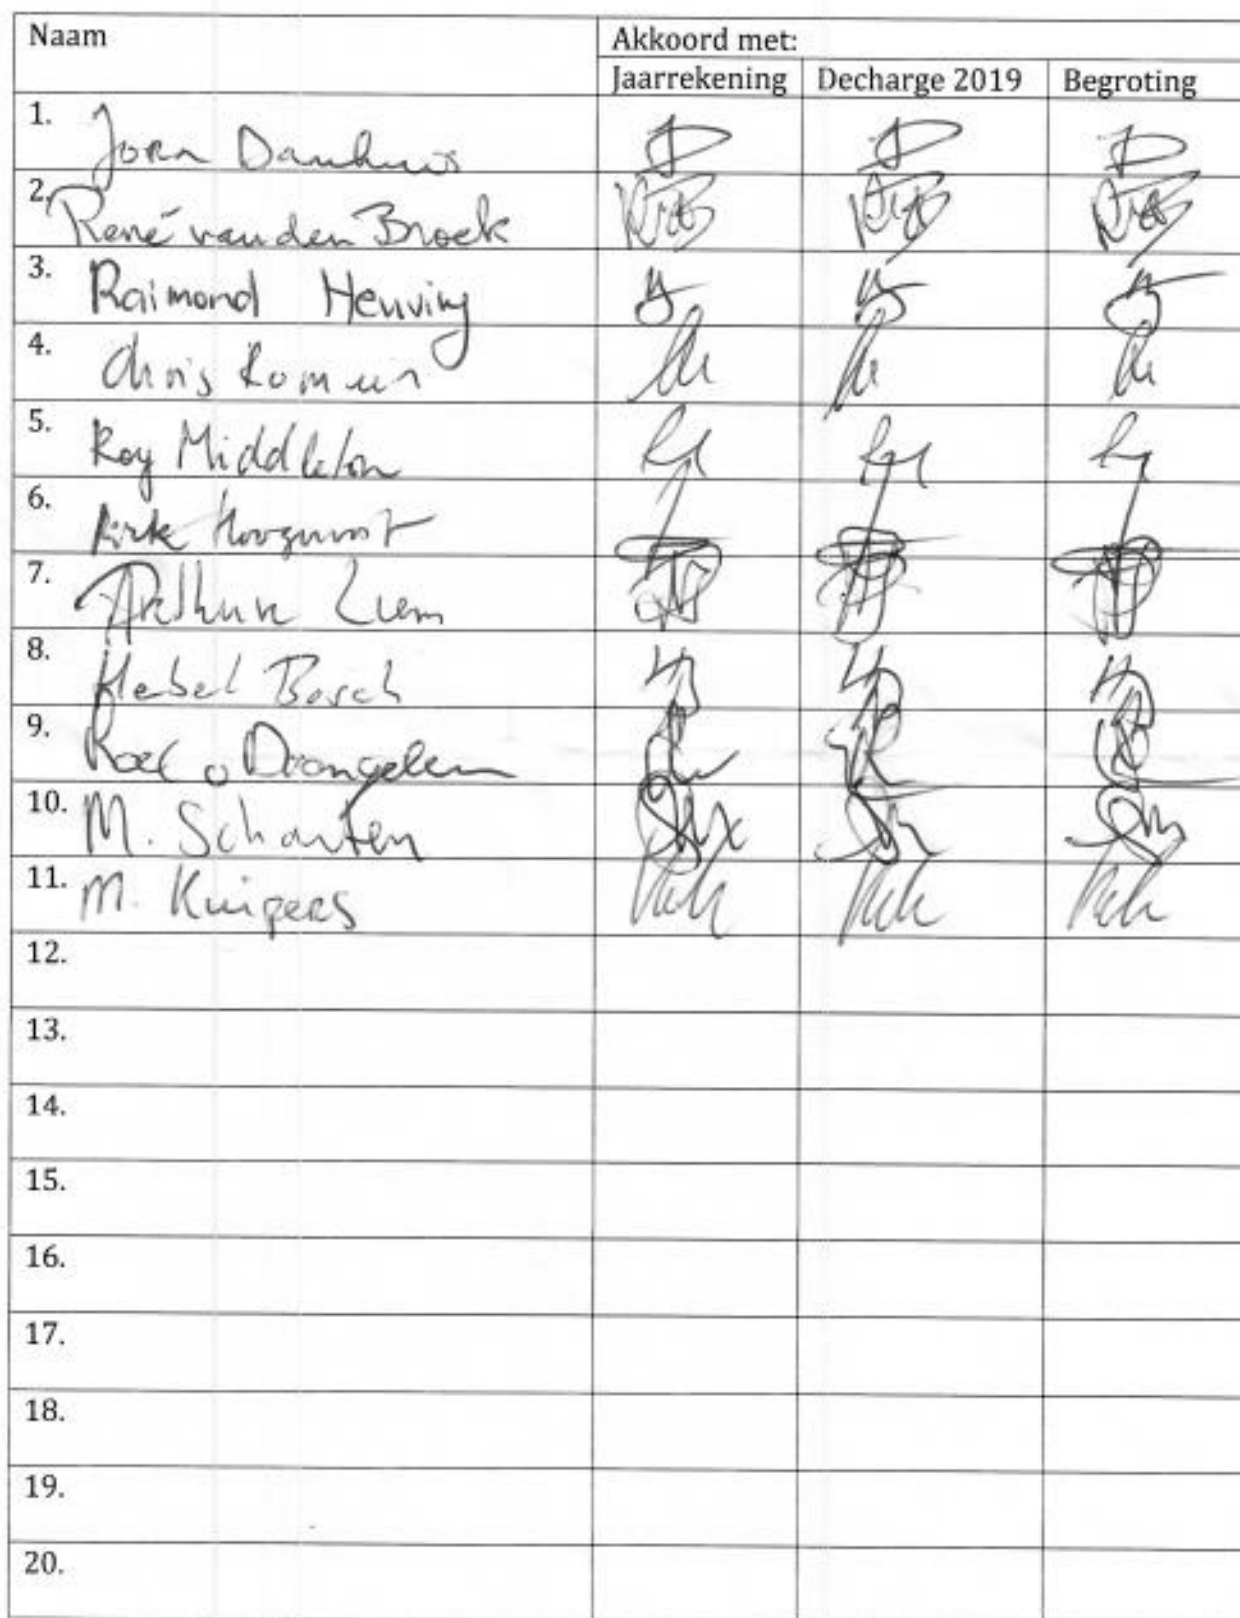 Naam
Akkoord met:
Jaarrekening Decharge 2019 Begroting
1. Jorn Danhuis
2. René van den Broek
3. Raimond Heuving
4. Chris Romeun
5. Roy Middleton
6. Dirk
7. Arthur Liem
8. Bosch
9. Roel v Drongelen
10. M. Schouten
11. M. Kuipers
12.
13.
14.
15.
16.
17.
18.
19.
20.